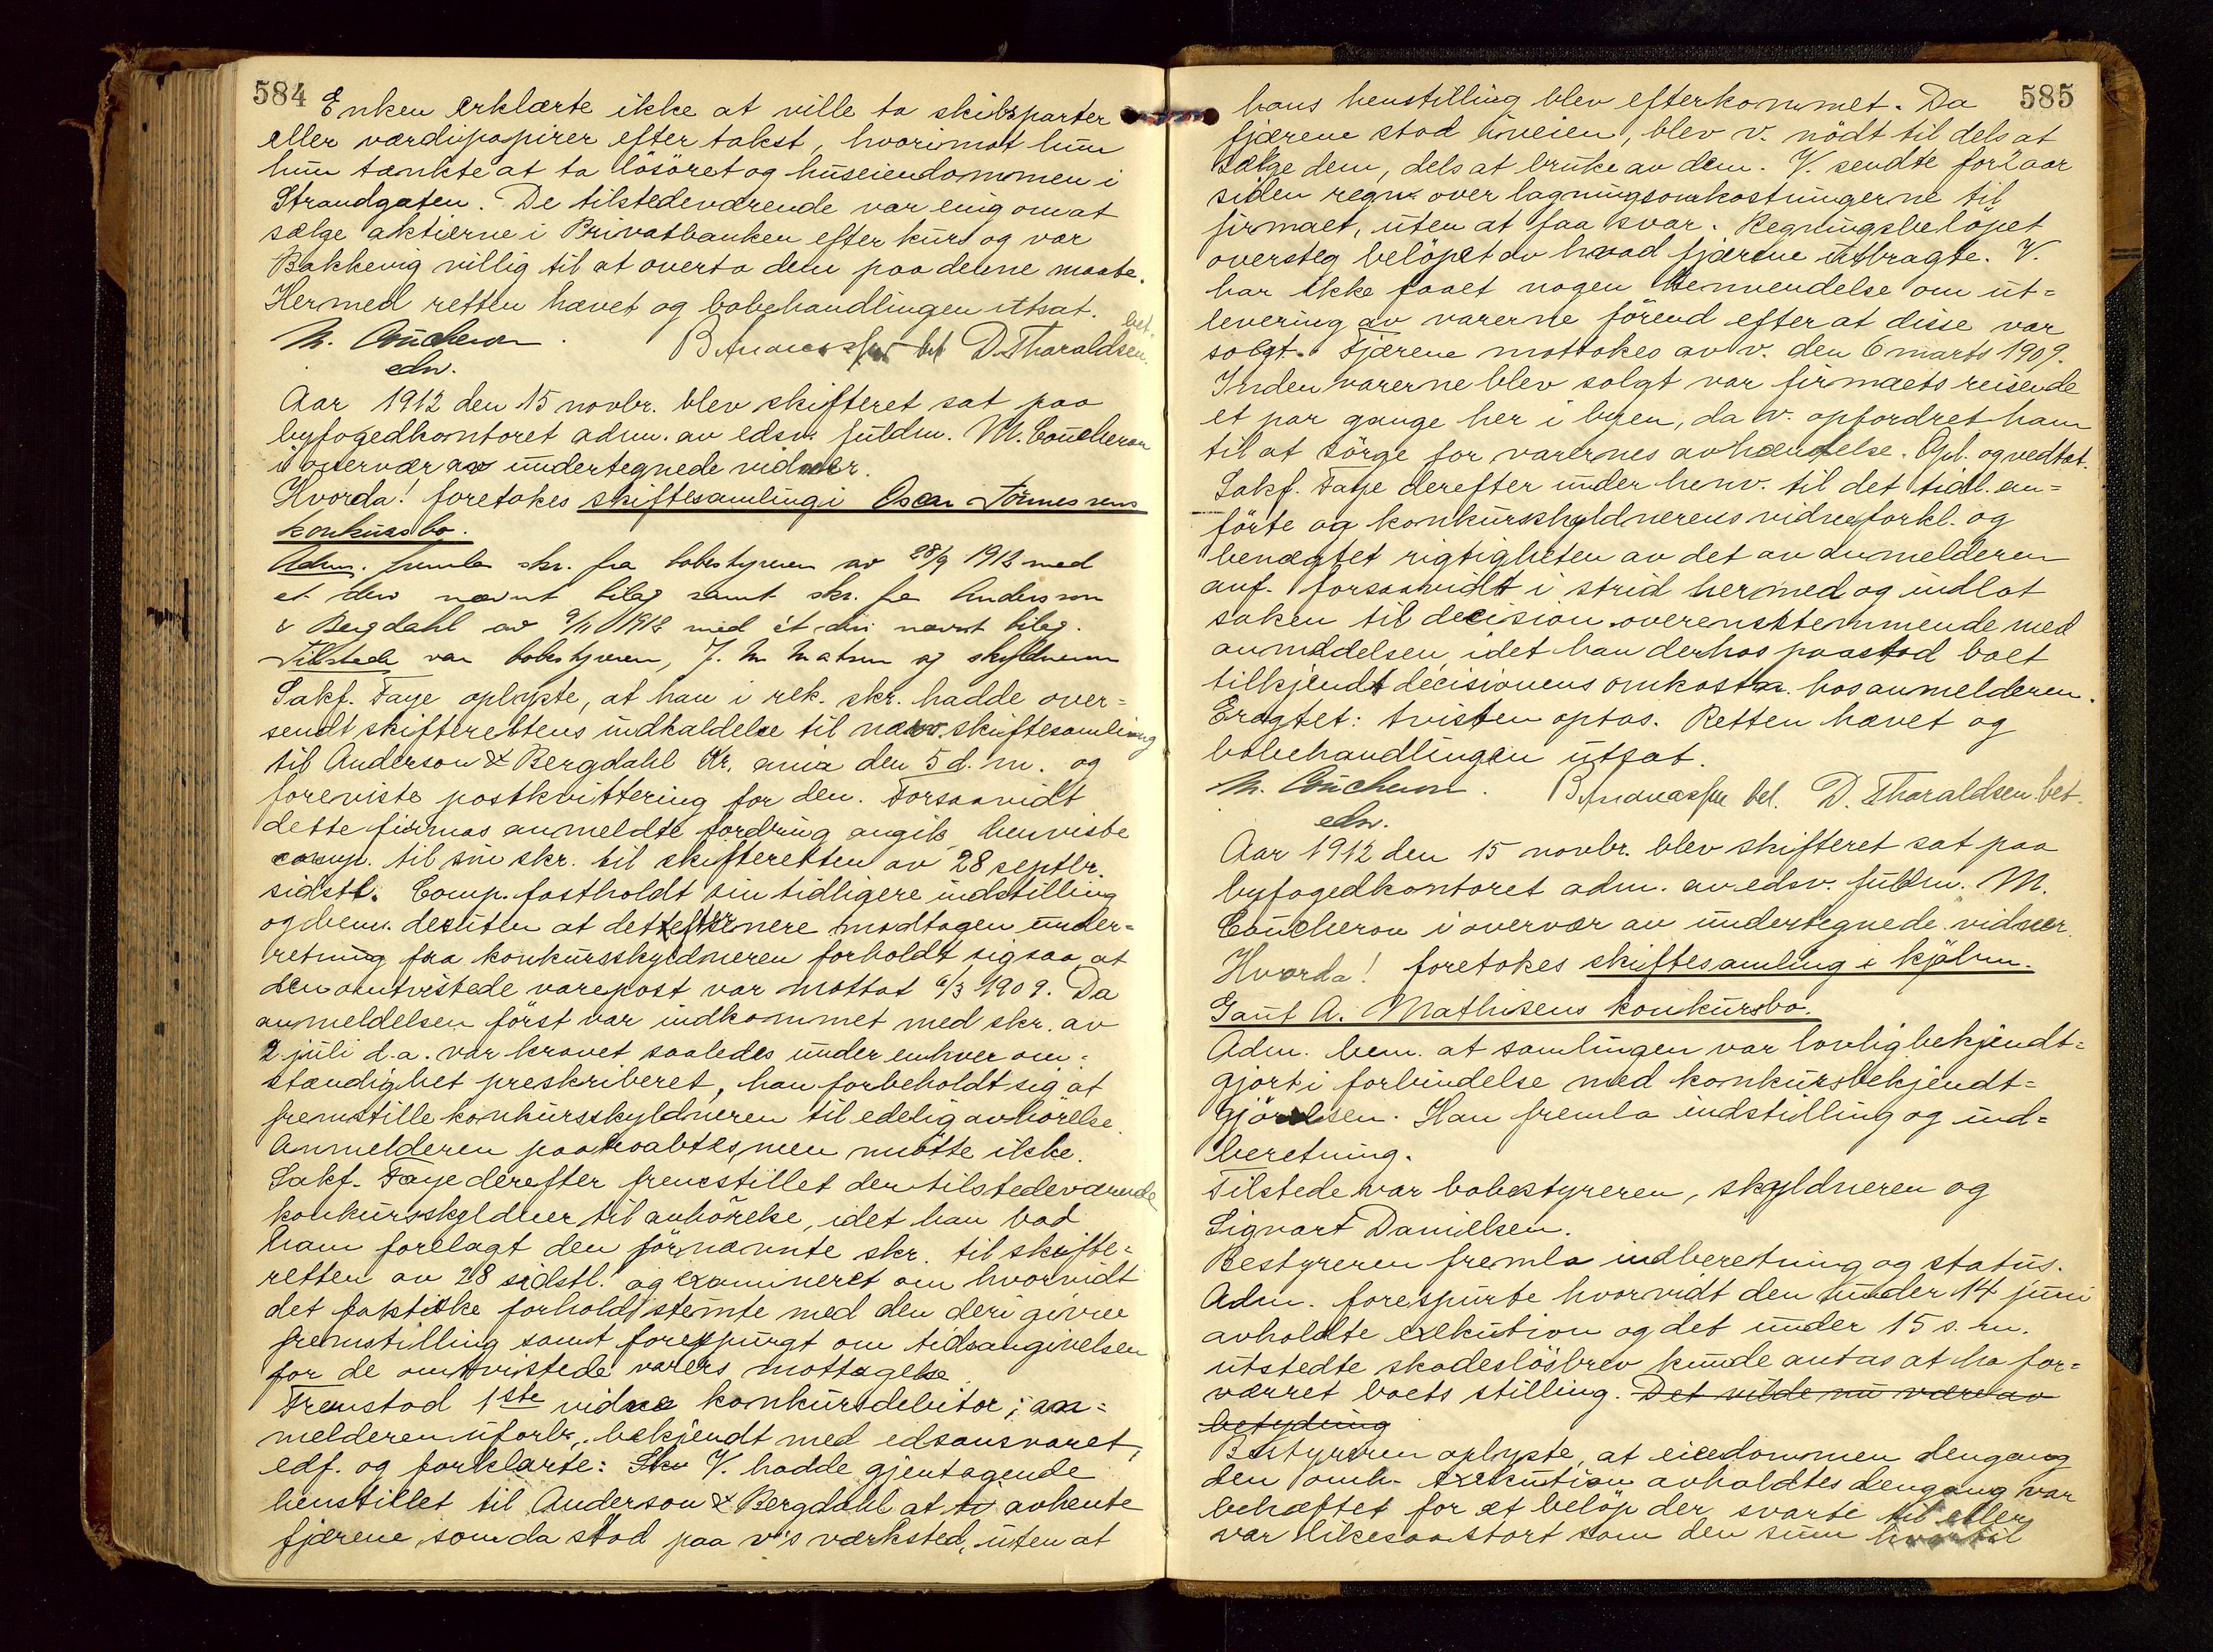 584
Enken erklærte ikke at ville ta skibsparter
eller værdipapirer efter takst, hvorimot hun
hun tænkte at ta løsøret og huseiendommen i
Strandgaten. De tilstedeværende var enig om at
sælge aktierne i Privatbanken efter kurs og var
Bakkevig villig til at overta dem paa denne maate.
Hermed retten hævet og bobehandlingen utsat.
M. Coucheron B Andreassen bet D. Tharaldsen bet.
edsv.
Aar 1912 den 15 novbr. blev skifteret sat paa
byfogedkontoret adm. av edsv. fuldm. M. Coucheron
i overvær av undertegnede vidner.
Hvorda! foretokes skiftesamling i Oscar Tönnessens
konkursbo.
Adm. fremla skr. fra bobestyreren av 28/9 1912 med
et deri nævnt bilag samt skr. fra Anderson
& Bergdahl av 9/11 1912 med ét deri nævnt bilag.
Tilstede var bobestyreren, J. M. Matsen og skyldneren
Sakf. Faye oplyste, at han i rek. skr. hadde over-
sendt skifterettens indkaldelse til nærv. skiftesamling
til Anderson & Bergdahl Kr.ania den 5 d. m. og
foreviste postkvittering for den. Forsaavidt
dette firmas anmeldte fordring angik henviste
comp. til sin skr. til skifteretten av 28 septbr.
sidstl. Comp. fastholdt sin tidligere indstilling
og bem. desuten at det efter senere modtagen under-
retning fra konkursskyldneren forholdt sig saa, at
den omtvistede varepost var mottat 6/3 1909. Da
anmeldelsen först var indkommet med skr. av
2 juli d.a. var kravet saaledes under enhver om-
stændighet preskriberet, han forbeholdt sig at
fremstille konkursskyldneren til edelig avhörelse.
Anmelderen paaroabtes, men mötte ikke.
Sakf. Faye derefter fremstillet den tilstedeværende
konkursskyldner til avhörelse, idet han bad
ham forelagt den förnævnte skr. til skifte-
retten av 28 sidstl. og examineret om hvorvidt
det faktiske forhold stemte med den deri givne
fremstilling samt forespurgt om tidsangivelsen
for de omtvistede varers mottagelse.
Fremstod 1ste vidne konkursdebitor; an-
melderen uforb., bekjendt med edsansvaret,
edf. og forklarte: Sku V. hadde gjentagende
henstillet til Anderson & Bergdahl at avhente
fjærene, som da stod paa v's værksted, uten at
585
hans henstilling blev efterkommet. Da
fjærene stod i veien, blev v. nödt til dels at
sælge dem, dels at bruke av dem. V. sendte for 2 aar
siden regn. over lagningsomkostningerne til
firmaet, uten at faa svar. Regningsbelöpet
oversteg belöpet av hvad fjærene utbragte. V.
har ikke faaet nogen henvendelse om ut-
levering av varerne förend efter at disse var
solgt. Fjærene mottokes av v. den 6 marts 1909.
Inden varerne blev solgt var firmaets reisende
et par gange her i byen, da v. opfordret ham
til at sörge for varernes avhændelse. Opl. og vedtat.
Sakf. Faye derefter under henv. til det tidl. an-
förte og konkursskyldnerens vidneforkl. og
benægtet rigtigheten av det av anmelderen
anf. forsaavidt i strid hermed og indlot
saken til decision overensstemmende med
anmeldelsen, idet han derhos paastod boet
tilkjendt decisionens omkostn. hos anmelderen.
Eragtet: tvisten optas. Retten hævet og
bobehandlingen utsat.
M. Coucheron. B Andreassen bet. D. Tharaldsen bet.
edsv.
Aar 1912 den 15 novbr. blev skifteret sat paa
byfogedkontoret adm. av edsv. fuldm. M.
Coucheron i overvær av undertegnede vidner.
Hvorda! foretokes skiftesamling i kjöbm.
Gaut A. Mathisens konkursbo.
Adm. bem. at samlingen var lovlig bekjendt-
gjort i forbindelse med konkursbekjendt-
gjörelsen. Han fremla indstilling og ind-
beretning.
Tilstede var bobestyreren, skyldneren og
Sigvart Danielsen.
Bestyreren fremla indberetning og status.
Adm. forespurte hvorvidt den under 14 juni
avholdte exekution og det under 15 s. m.
utstedte skadeslösbrev kunde antas at ha for-
værret boets stilling. Det vilde nu være av
betydning
Bestyreren oplyste, at eiendommen dengang
den omh. exekution avholdtes dengang var
behæftet for et belöp der svarte til eller
var likesaa stort som den sum hvortil